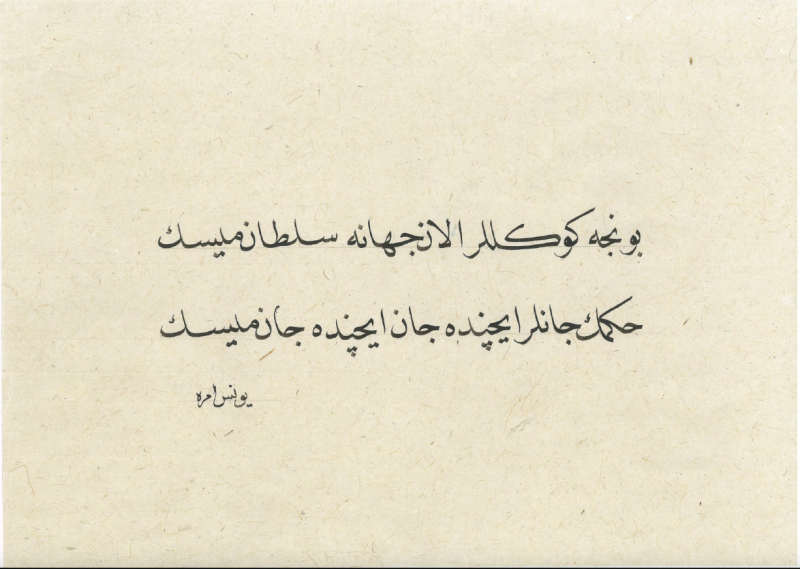 بونجه كوكللر الان جهانه سلطان ميسك
حكمك جانلر ايچنده جان ايچنده جان ميسك
يونس امره